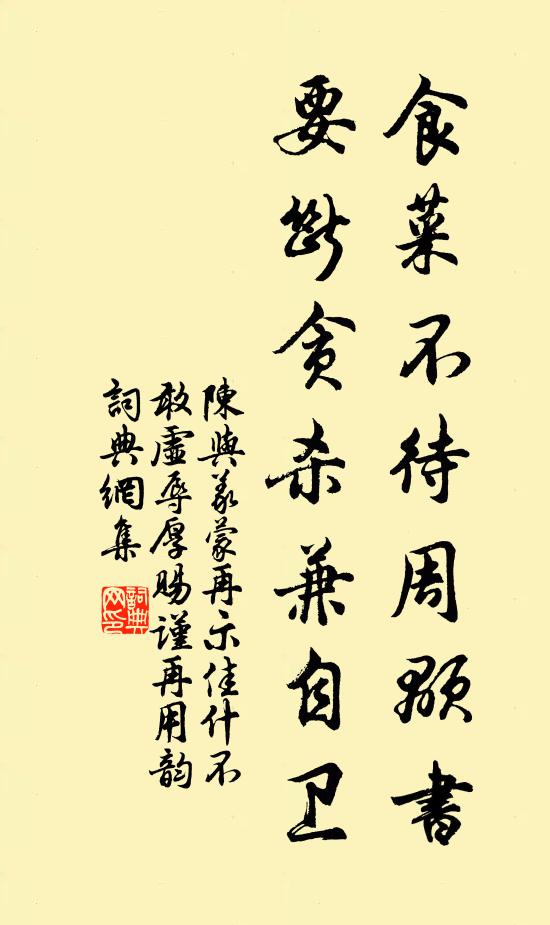 食菜不待周顒書
要断貪杀兼自卫
陳與義蒙再示佳什不
敢虛辱厚賜謹再用韵
詞典網集
詞典网印